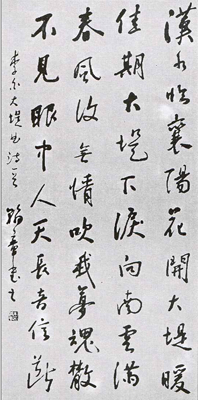 漢水臨襄陽花開大堤暖
佳期大堤下淚向南雲滿
春風復無情吹我夢魂散
不見眼中人天長音信斷
李白大堤曲